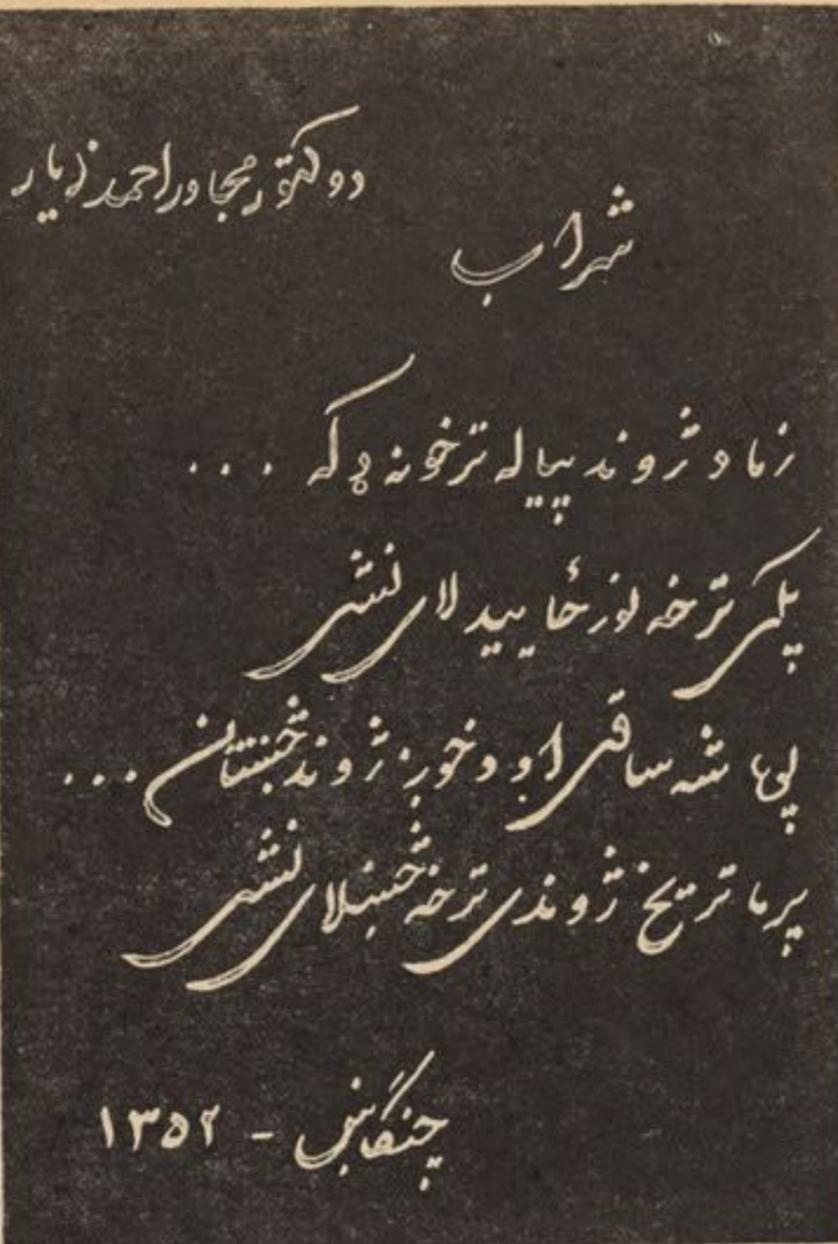 دوکتور مجاور احمد زیار
شراب
زما د ژوند پیاله ترخو نه ډکه ...
پکې ترخه نور ځاییدلای نشي
شه ساقي او د خوږ ژوند څښتان ...
پرما تریخ ژوندی ترخه څښلای نشي
چنګاښ - ۱۳۵۲